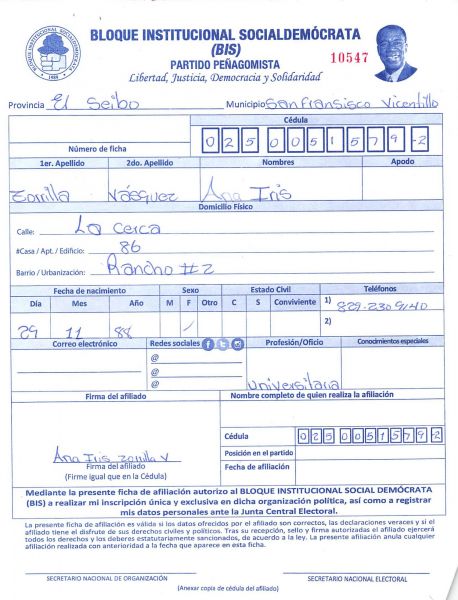 BLOQUE INSTITUCIONAL SOCIALDEMÓCRATA
(BIS)
PARTIDO PEÑAGOMISTA
10547
Libertad, Justicia, Democracia y Solidaridad
BLOQUE INSTITUCIONAL SOCIALDEMOCRATA
Provincia El Seibo Municipio San Fransisco Vicentillo
Cédula
Número de ficha 025 0051579-2
1er. Apellido 2do. Apellido Nombres Apodo
Zorrilla Vásquez Ana Iris
Domicilio Físico
Calle: La Cerca
#Casa / Apt. / Edificio: 86
Barrio / Urbanización: Rancho #2
Fecha de nacimiento Sexo Estado Civil Teléfonos
Día Mes Año M F Otro C S Conviviente 1) 829-230 9140
29 11 88 / 2)
Correo electrónico Redes sociales Profesión/Oficio Conocimientos especiales
@
@
@ Universitaria
Firma del afiliado Nombre completo de quien realiza la afiliación
Cédula 025 0051579-2
Ana Iris zorrilla V Posición en el partido
Firma del afiliado Fecha de afiliación
(Firme igual que en la Cédula)
Mediante la presente ficha de afiliación autorizo al BLOQUE INSTITUCIONAL SOCIAL DEMÓCRATA
(BIS) a realizar mi inscripción única y exclusiva en dicha organización política, así como a registrar
mis datos personales ante la Junta Central Electoral.
La presente ficha de afiliación es válida si los datos ofrecidos por el afiliado son correctos, las declaraciones veraces y si el
afiliado tiene el disfrute de sus derechos civiles y políticos. Tras su recepción, sello y firma autorizadas el afiliado ejercerá
todos los derechos y los deberes estatutariamente sancionados, de acuerdo a la ley. La presente afiliación anula cualquier
afiliación realizada con anterioridad a la fecha que aparece en esta ficha.
SECRETARIO NACIONAL DE ORGANIZACIÓN SECRETARIO NACIONAL ELECTORAL
(Anexar copia de cédula del afiliado)